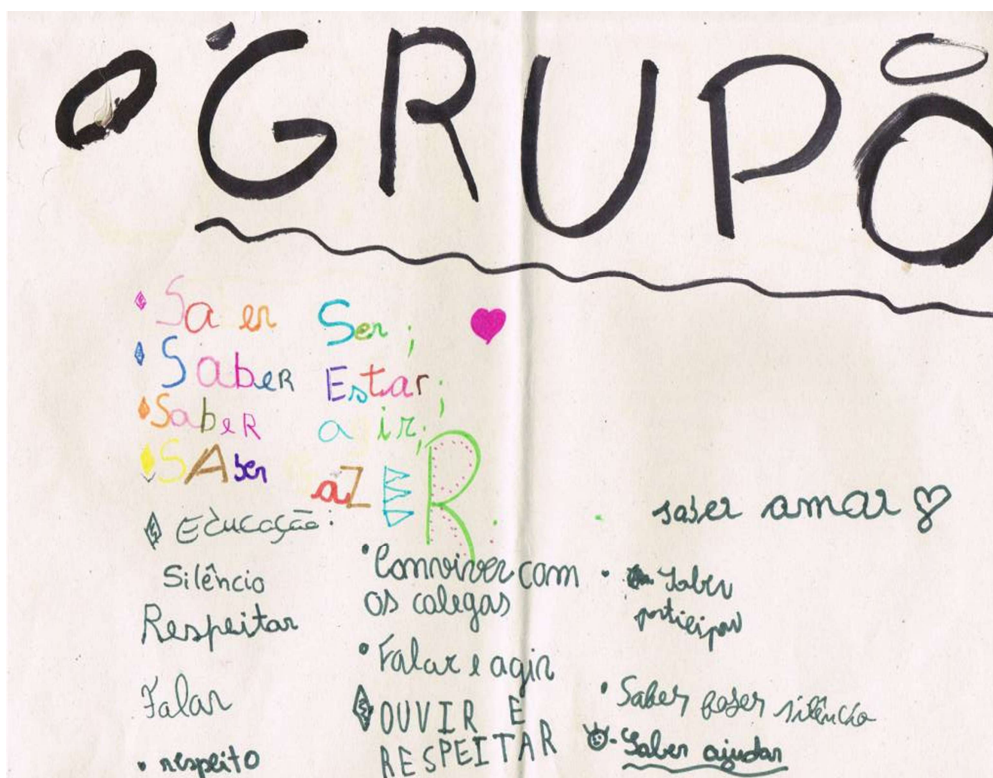 O GRUPO
Sa er Ser;
Saber Estar;
Saber a ir;
SAber aZER.
Educação.
Silêncio
Respeitar
Falar
respeito
Comviver com
os colegas
Falar e agir
OUVIR E
RESPEITAR
saber amar
Saber
participar
Saber faser silêncio
Saber ajudar